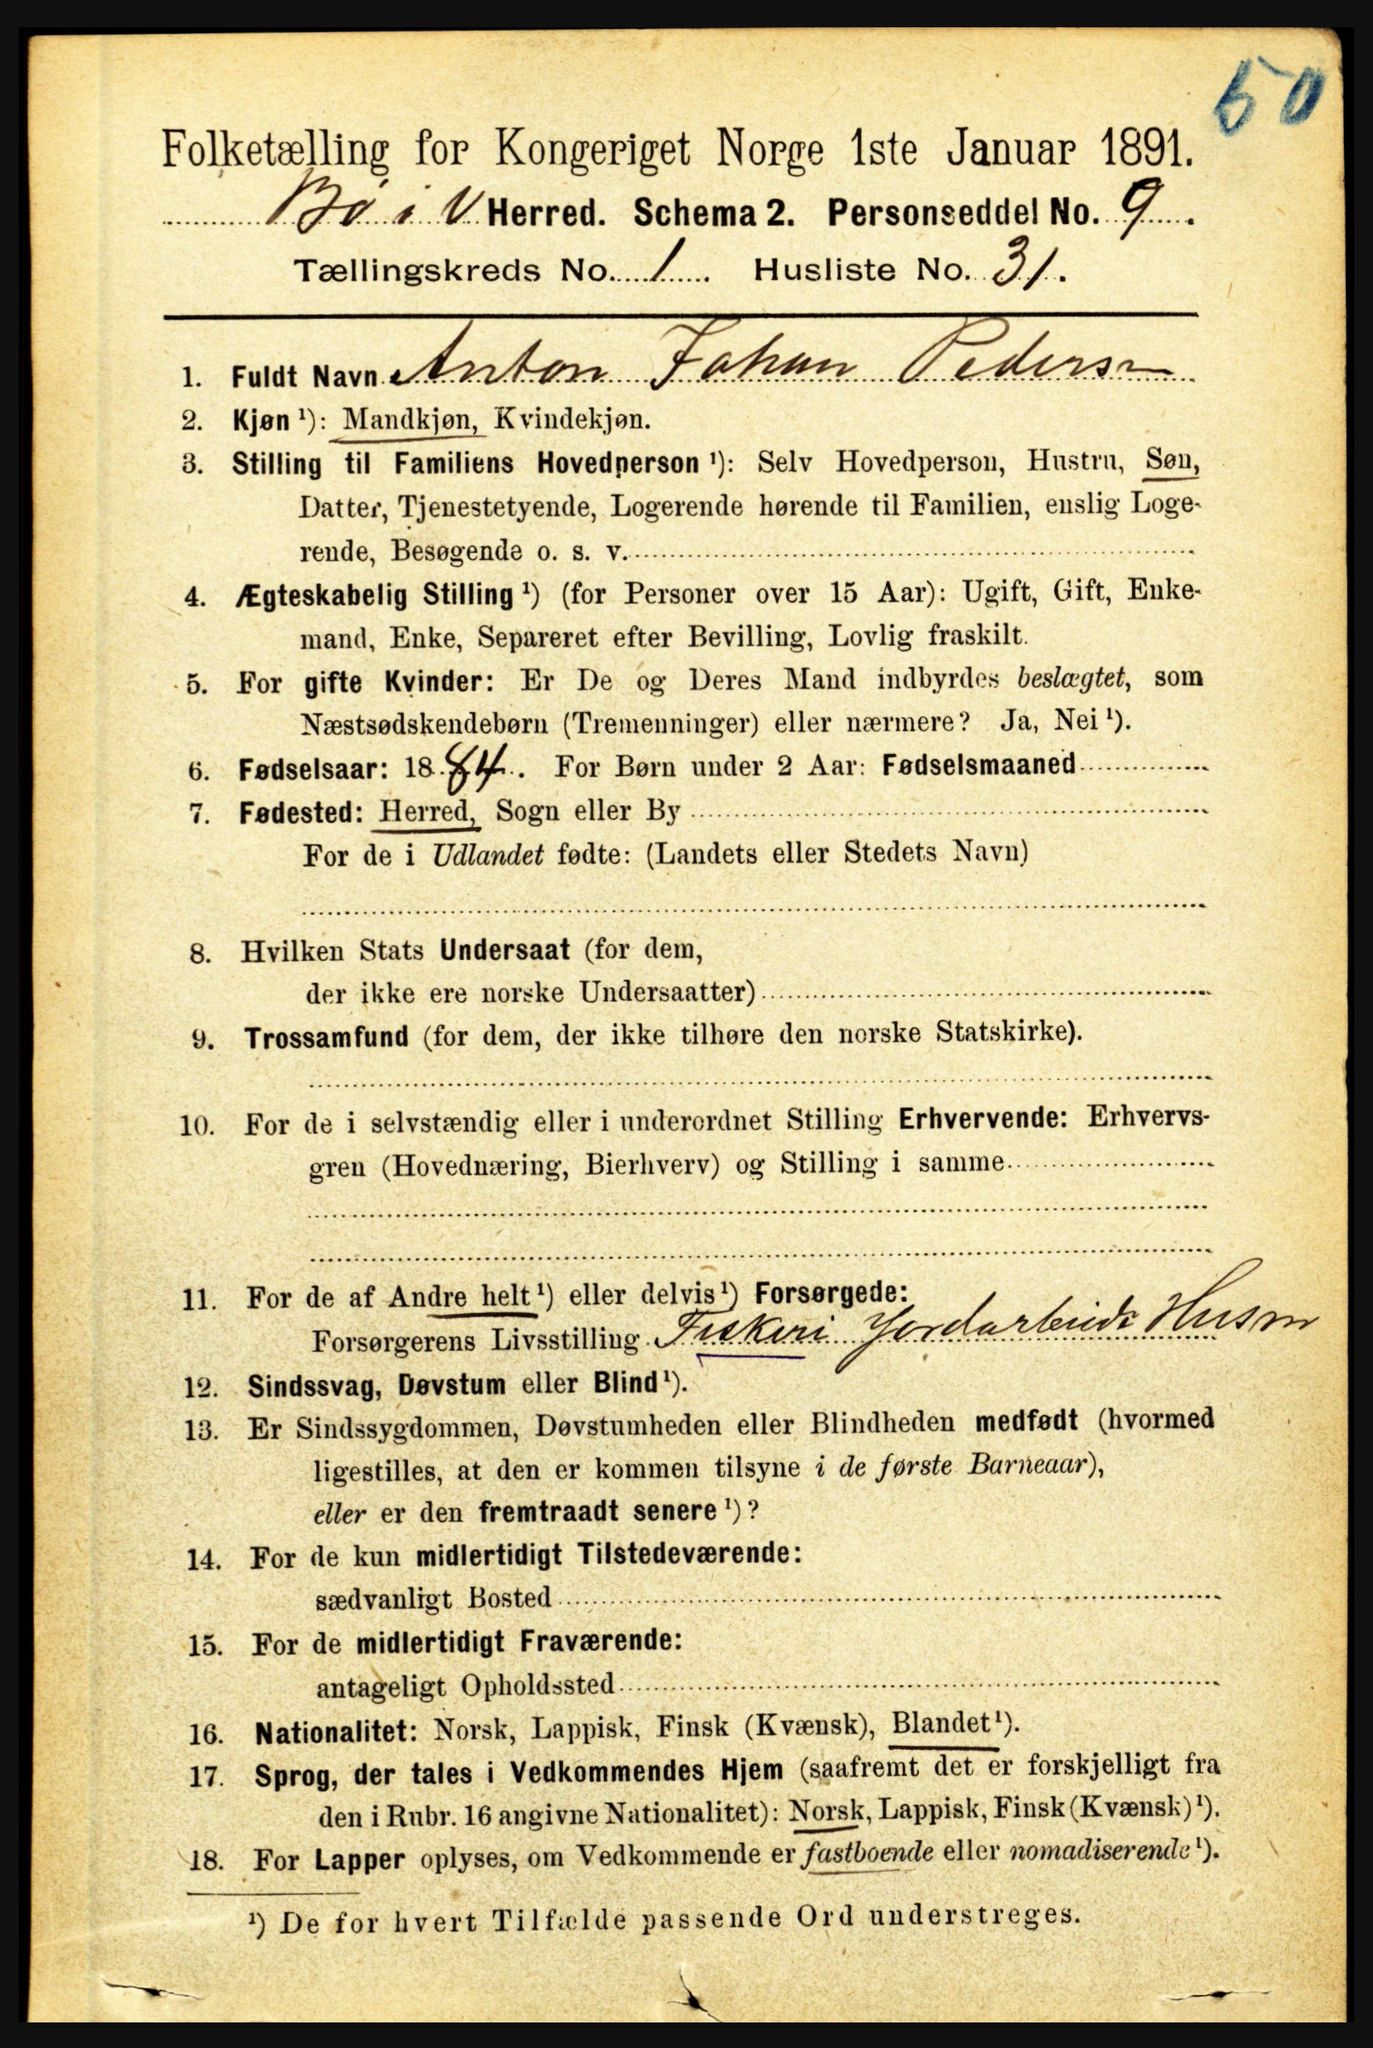 50
Folketælling for Kongeriget Norge 1ste Januar 1891.
Bö i V Herred. Schema 2. Personseddel No. 9.
Tællingskreds No. 1. Husliste No. 31.
1. Fuldt Navn Anton Johan Pedersn
2. Kjøn ¹): Mandkjøn, Kvindekjøn.
3. Stilling til Familiens Hovedperson ¹): Selv Hovedperson, Hustru, Søn,
Datter, Tjenestetyende, Logerende hørende til Familien, enslig Loge-
rende, Besøgende o. s. v.
4. Ægteskabelig Stilling ¹) (for Personer over 15 Aar): Ugift, Gift, Enke-
mand, Enke, Separeret efter Bevilling, Lovlig fraskilt.
5. For gifte Kvinder: Er De og Deres Mand indbyrdes beslægtet, som
Næstsødskendebørn (Tremenninger) eller nærmere? Ja, Nei ¹).
6. Fødselsaar: 1884. For Børn under 2 Aar: Fødselsmaaned
7. Fødested: Herred, Sogn eller By
For de i Udlandet fødte: (Landets eller Stedets Navn)
8. Hvilken Stats Undersaat (for dem,
der ikke ere norske Undersaatter)
9. Trossamfund (for dem, der ikke tilhøre den norske Statskirke).
10. For de i selvstændig eller i underordnet Stilling Erhvervende: Erhvervs-
gren (Hovednæring, Bierhverv) og Stilling i samme
11. For de af Andre helt ¹) eller delvis ¹) Forsørgede:
Forsørgerens Livsstilling Fiskeri Jordarbeide Husm
12. Sindssvag, Døvstum eller Blind ¹).
13. Er Sindssygdommen, Døvstumheden eller Blindheden medfødt (hvormed
ligestilles, at den er kommen tilsyne i de første Barneaar),
eller er den fremtraadt senere ¹)?
14. For de kun midlertidigt Tilstedeværende:
sædvanligt Bosted
15. For de midlertidigt Fraværende:
antageligt Opholdssted
16. Nationalitet: Norsk, Lappisk, Finsk (Kvænsk), Blandet ¹).
17. Sprog, der tales i Vedkommendes Hjem (saafremt det er forskjelligt fra
den i Rubr. 16 angivne Nationalitet): Norsk, Lappisk, Finsk (Kvænsk) ¹).
18. For Lapper oplyses, om Vedkommende er fastboende eller nomadiserende ¹).
¹) De for hvert Tilfælde passende Ord understreges.